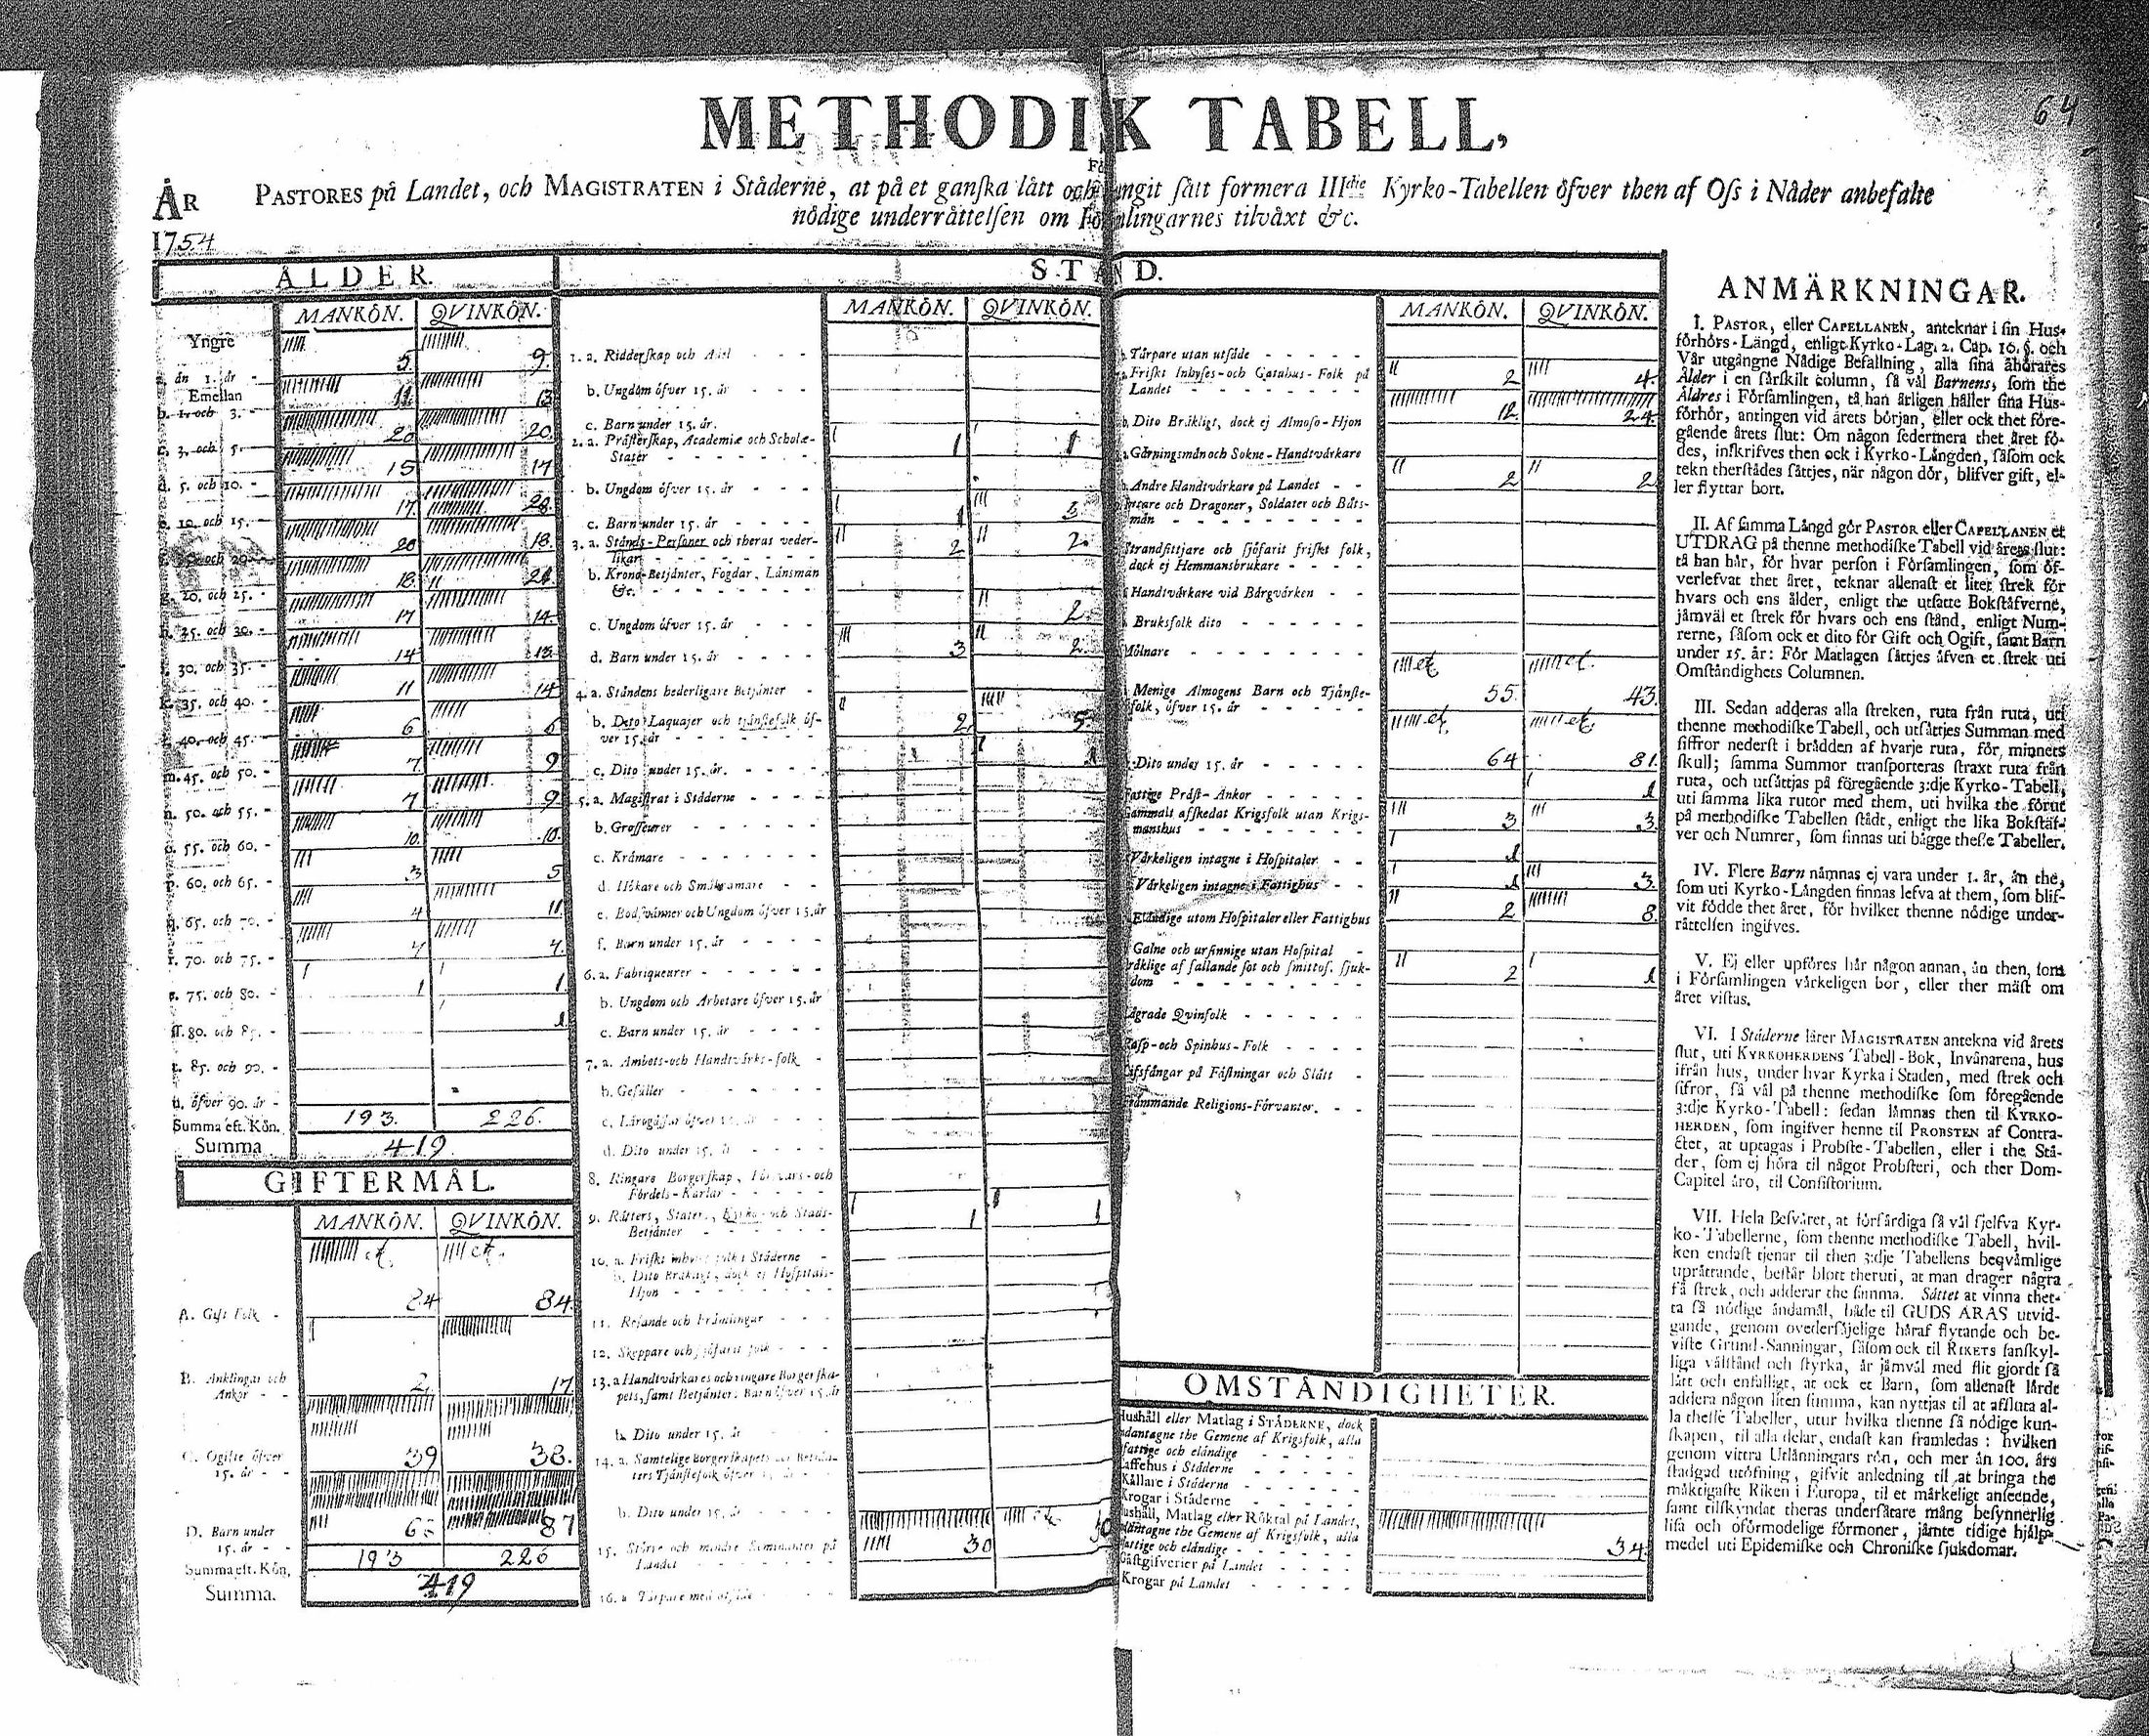 64
METHODIK TABELL,
ÅR PASTORES på Landet, och MAGISTRATEN i Städerne, at på et ganska lätt och ginge sätt formera IIIdie Kyrko-Tabellen öfver then af Oss i Nåder anbefalte
nödige underrättelsen om Församlingarnes tilväxt &c.
1754
ÅLDER.
MANKÖN. QVINKÖN.
Yngre
a. än 1. år - 5. 9.
Emellan
b. 1. och 3. - 11. 13
c. 3. och 5. 20 20.
d. 5. och 10. - 15 17
e. 10. och 15. 17 28.
20. 18.
g. 20. och 25. - 18. 21
h. 25. och 30. - 17 14.
i. 30. och 35. - 14 13.
k. 35. och 40. - 11 14
l. 40. och 45. - 6 6
m. 45. och 50. - 7 9
n. 50. och 55. - 7 9
o. 55. och 60. - 10. 10.
p. 60. och 65. - 3 5
q. 65. och 70. - 4 11
r. 70. och 75. - 7 7.
s. 75. och 80. - 1 1.
ſſ. 80. och 85. - 1
t. 85. och 90. -
u. öfver 90. år -
Summa eft. Kön. 193. 226.
Summa 419
GIFTERMÅL.
MANKÖN. QVINKÖN.
A. Gift Folk - 84 84.
B. Änklingar och
Änkor - - 2 17
C. Ogifte öfver
15. år - - 39 38.
D. Barn under
15. år - - 87
Summa eft. Kön, 193 226
Summa. 419
STÅND.
MANKÖN. QVINKÖN.
1. a. Ridderskap och Adel - - -
b. Ungdom öfver 15. år - - -
c. Barn under 15. år.
2. a. Prästerskap, Academiæ och Scholæ-
Stater - - - - - - - 1 1
b. Ungdom öfver 15. år - - -
c. Barn under 15. år - - - - 1 3
3. a. Stånds-Personer och theras veder-
likar - - - - - - 2 2.
b. Krono-Betjänter, Fogdar, Länsmän
&c. - - - - - - -
c. Ungdom öfver 15. år - - - 2
d. Barn under 15. år - - - - 3 2.
4. a. Ståndens hederligare Betjänter -
b. Dito Laquajer och tjänstefolk öf-
ver 15. år - - - - - - 2 5.
c. Dito under 15. år. - - - - 1
5. a. Magistrat i Städerne - - - -
b. Grosseurer - - - - - -
c. Krämare - - - - - -
d. Hökare och Småkrämare - -
e. Bodsvänner och Ungdom öfver 15. år
f. Barn under 15. år - - - -
6. a. Fabriqueurer - - - - - -
b. Ungdom och Arbetare öfver 15. år
c. Barn under 15. år - - - -
7. a. Ämbets- och Handtvärks-folk -
b. Gesäller - - - - - -
c. Lärogåssar öfver 15. år - - -
d. Dito under 15. år - - - -
8. Ringare Borgerskap, Försvars- och
Fördels-Karlar - - - - -
9. Rätters, Staters, Kyrko- och Stads-
Betjänter - - - - - - 1 1
10. a. Friskt inhyses folk i Städerne -
b. Dito Bräkligt, dock ej Hospitals-
Hjon - - - - - - -
11. Resande och Främlingar - - -
12. Skeppare och sjöfarit folk - - -
13. a Handtvärkares och ringare Borgerska-
pets, samt Betjänters Barn öfver 15. år
b. Dito under 15. år - - -
14. a. Samtelige Borgerskapets och Betjän-
ters Tjänstefolk öfver 15. år - - -
b. Dito under 15. år - - -
15. Större och mindre Hemmanter på
Landet - - - - - - 30 30
16. a Tårpare med utsäde - - - -
MANKÖN. QVINKÖN.
Tårpare utan utsäde - - - - -
Friskt Inhyses- och Gatuhus-Folk på
Landet - - - - - - - 2 4.
b. Dito Bräkligt, dock ej Almoso-Hjon 12. 24.
Gärningsmän och Sokne-Handtvärkare
Andre Handtvärkare på Landet - - 2 2
Ryttare och Dragoner, Soldater och Båts-
män - - - - - - - -
Strandsittjare och sjöfarit friskt folk,
dock ej Hemmansbrukare - - - -
Handtvärkare vid Bärgvärken - -
Bruksfolk dito - - - - - -
Mölnare - - - - - - - -
Menige Almogens Barn och Tjänste-
folk, öfver 15. år - - - - - 55. 43.
Dito under 15. år - - - - - 64 81.
Fattige Präst-Änkor - - - - 1
Gammalt afskedat Krigsfolk utan Krigs-
manshus - - - - - - - 3 3.
Värkeligen intagne i Hospitaler - - 1
Värkeligen intagne i Fattighus - - 1 3.
Eländige utom Hospitaler eller Fattighus 2 8.
Galne och ursinnige utan Hospital -
Bräklige af fallande sot och smittos. sjuk-
dom - - - - - - - 2 1
Lägrade Qvinfolk - - - - -
Rasp- och Spinhus-Folk - - - -
Lifsfångar på Fästningar och Slått -
Främmande Religions-Förvanter. - -
OMSTÄNDIGHETER.
Hushåll eller Matlag i STÄDERNE, dock
undantagne the Gemene af Krigsfolk, alla
fattige och eländige - - - -
Caffehus i Städerne - - - -
Källare i Städerne - - - - -
Krogar i Städerne - - - - -
Hushåll, Matlag eller Röktal på Landet,
undantagne the Gemene af Krigsfolk, alla
fattige och eländige - - - - - 34.
Gästgifverier på Landet - - - -
Krogar på Landet - - - -
ANMÄRKNINGAR.
I. PASTOR, eller CAPELLANEN, anteknar i sin Hus-
förhörs-Längd, enligt Kyrko-Lag. 2. Cap. 10. §. och
Vår utgångne Nådige Befallning, alla sina åhörares
Ålder i en särskilt column, så väl Barnens, som the
Äldres i Församlingen, tå han årligen håller sina Hus-
förhör, antingen vid årets början, eller ock thet före-
gående årets slut: Om någon sedermera thet året fö-
des, inskrifves then ock i Kyrko-Längden, såsom ock
tekn therstädes sättjes, när någon dör, blifver gift, el-
ler flyttar bort.
II. Af samma Längd gör PASTOR eller CAPELLANEN et
UTDRAG på thenne methodiske Tabell vid årets slut:
tå han här, för hvar person i Församlingen, som öf-
verlefvat thet året, teknar allenast et litet strek för
hvars och ens ålder, enligt the utsatte Bokstäfverne,
jämväl et strek för hvars och ens stånd, enligt Num-
rerne, såsom ock et dito för Gift och Ogift, samt Barn
under 15. år: För Matlagen sättjes äfven et strek uti
Omständighets Columnen.
III. Sedan adderas alla streken, ruta från ruta, uti
thenne methodiske Tabell, och utsättjes Summan med
siffror nederst i brädden af hvarje ruta, för minnets
skull; samma Summor transporteras straxt ruta från
ruta, och utsättjas på föregående 3:dje Kyrko-Tabell,
uti samma lika rutor med them, uti hvilka the förut
på methodiske Tabellen städt, enligt the lika Bokstäf-
ver och Numrer, som finnas uti bägge thesse Tabeller.
IV. Flere Barn nämnas ej vara under 1. år, än the,
som uti Kyrko-Längden finnas lefva at them, som blif-
vit födde thet året, för hvilket thenne nödige under-
rättelsen ingifves.
V. Ej eller upföres här någon annan, än then, som
i Församlingen värkeligen bor, eller ther mäst om
året vistas.
VI. I Städerne lärer MAGISTRATEN antekna vid årets
slut, uti KYRKOHERDENS Tabell-Bok, Invånarena, hus
ifrån hus, under hvar Kyrka i Staden, med strek och
sifror, så väl på thenne methodiske som föregående
3:dje Kyrko-Tabell: sedan lämnas then til KYRKO-
HERDEN, som ingifver henne til PROBSTEN af Contra-
ctet, at uptagas i Probste-Tabellen, eller i the Stä-
der, som ej höra til något Probsteri, och ther Dom-
Capitel äro, til Consistorium.
VII. Hela Besväret, at förfärdiga så väl sjelfva Kyr-
ko-Tabellerne, som thenne methodiske Tabell, hvil-
ken endast tjenar til then 3:dje Tabellens beqvämlige
uprättande, består blott theruti, at man drager några
få strek, och adderar the samma. Sättet at vinna thet-
ta så nödige ändamål, både til GUDS ÄRAS utvid-
gande, genom ovedersäjelige häraf flytande och be-
viste Grund-Sanningar, såsom ock til RIKETS sanskyl-
liga välstånd och styrka, är jämväl med flit gjordt så
lätt och enfalligt, at ock et Barn, som allenast lärde
addera någon liten summa, kan nyttjas til at affluta al-
la thesse Tabeller, utur hvilka thenne så nödige kun-
skapen, til alla delar, endast kan framledas: hvilken
genom vittra Utlänningars rön, och mer än 100. års
stadgad utöfning, gifvit anledning til at bringa the
mäktigaste Riken i Europa, til et märkeligt anseende,
samt tilskyndat theras undersåtare mång besynnerlig
lisa och oförmodelige förmoner, jämte tidige hjälp-
medel uti Epidemiske och Chroniske sjukdomar.